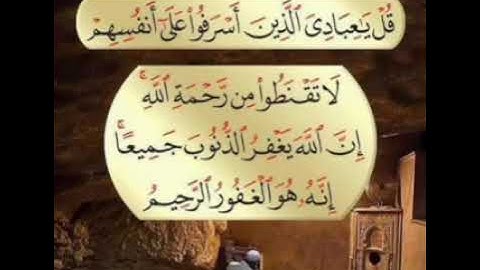 قُلْ يَٰعِبَادِىَ ٱلَّذِينَ أَسْرَفُوا۟ عَلَىٰٓ أَنفُسِهِمْ
لَا تَقْنَطُوا۟ مِن رَّحْمَةِ ٱللَّهِ ۚ
إِنَّ ٱللَّهَ يَغْفِرُ ٱلذُّنُوبَ جَمِيعًا ۚ
إِنَّهُۥ هُوَ ٱلْغَفُورُ ٱلرَّحِيمُ